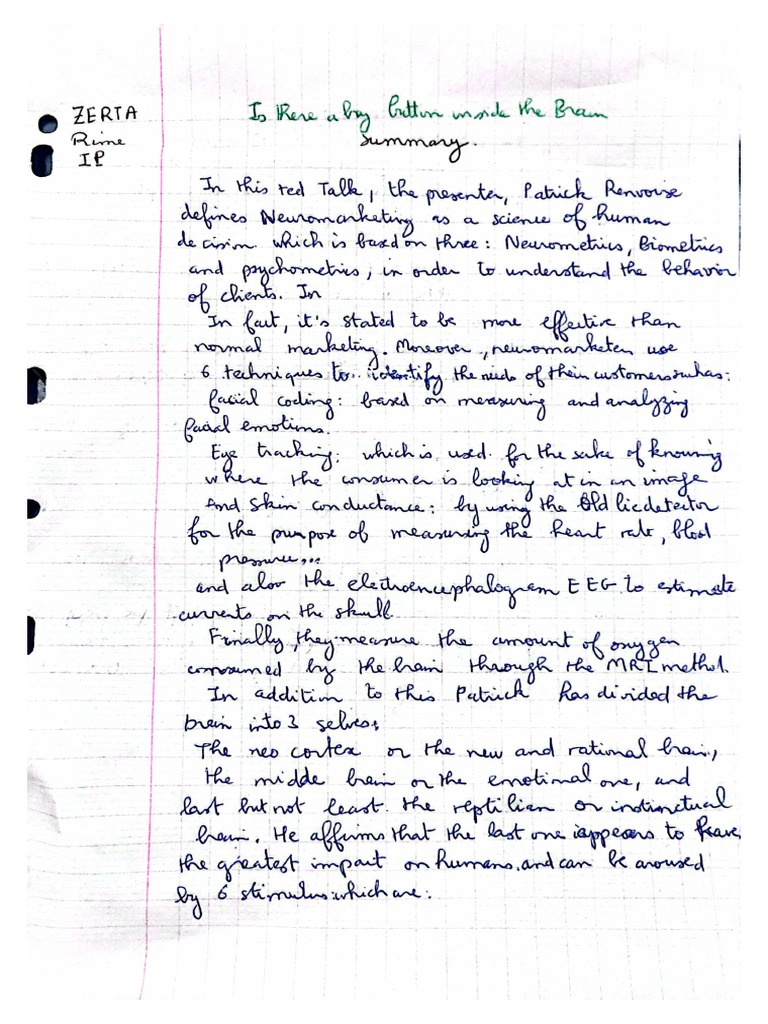 ZERTA
Rime
IP
Is there a buy button inside the Brain
Summary.
In this ted Talk, the presenter, Patrick Renvoise
defines Neuromarketing as a science of human
decision which is based on three: Neurometrics, Biometrics
and psychometrics, in order to understand the behavior
of clients. In
In fact, it's stated to be more effective than
normal marketing. Moreover, neuromarketers use
6 techniques to identify the needs of their customers suchas:
facial coding: based on measuring and analyzing
facial emotions.
Eye tracking: which is used for the sake of knowing
where the consumer is looking at in an image
And Skin conductance: by using the Old lie detector
for the purpose of measuring the heart rate, blood
pressure...
and also the electroencephalogram EEG to estimate
currents on the skull
Finally, they measure the amount of oxygen
consumed by the brain through the MRI method.
In addition to this Patrick has divided the
brain into 3 selves:
The neo cortex or the new and rational brain,
the midde brain or the emotional one, and
last but not least the reptilian or instinctual
brain. He affirms that the last one appears to have
the greatest impact on humans. and can be aroused
by 6 stimulus which are: